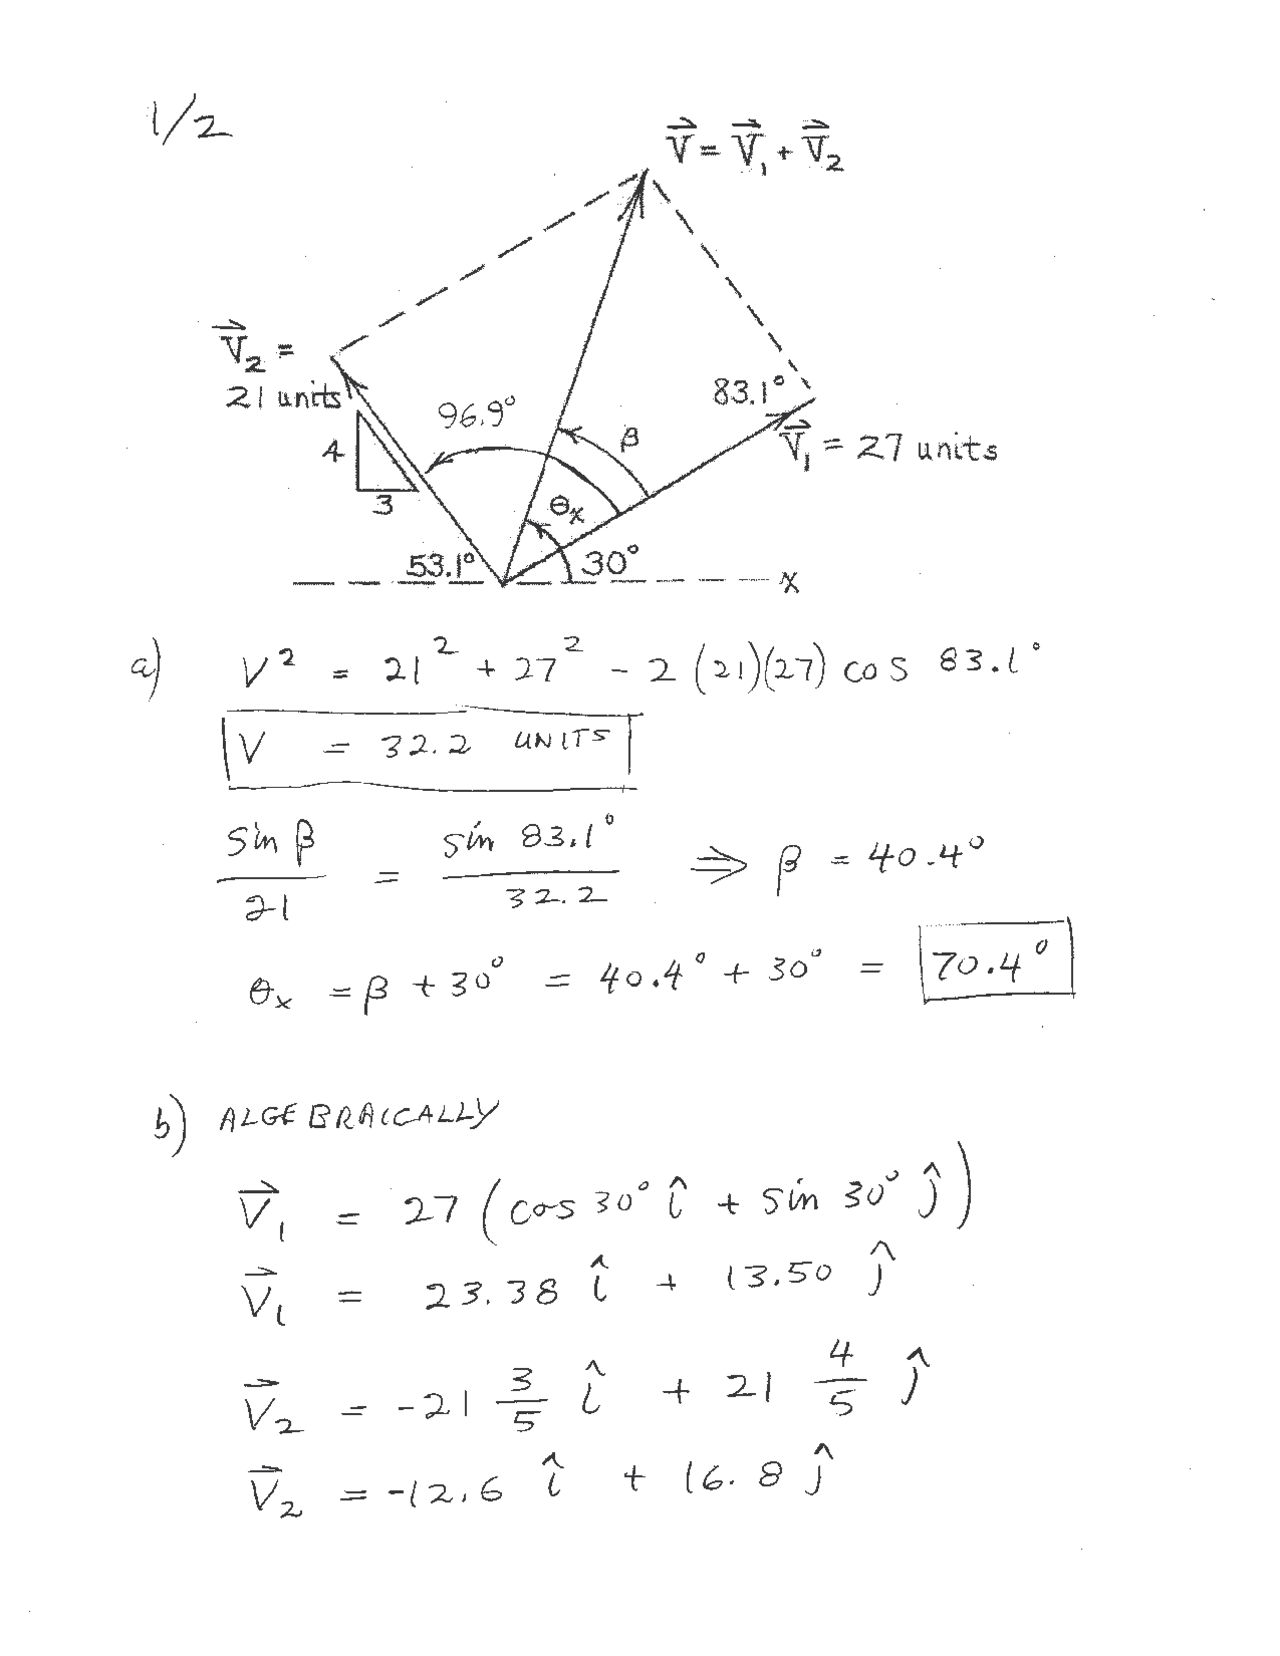 1/2
V⃗ = V⃗₁ + V⃗₂
V⃗₂ =
21 units
83.1°
96.9°
β
V⃗₁ = 27 units
4
3
θₓ
53.1°
30°
x
a) V² = 21² + 27² - 2 (21)(27) cos 83.1°
V = 32.2 UNITS
sin β / 21 = sin 83.1° / 32.2 ⇒ β = 40.4°
θₓ = β + 30° = 40.4° + 30° = 70.4°
b) ALGEBRAICALLY
V⃗₁ = 27 (cos 30° î + sin 30° ĵ)
V⃗₁ = 23.38 î + 13.50 ĵ
V⃗₂ = -21 3/5 î + 21 4/5 ĵ
V⃗₂ = -12.6 î + 16.8 ĵ